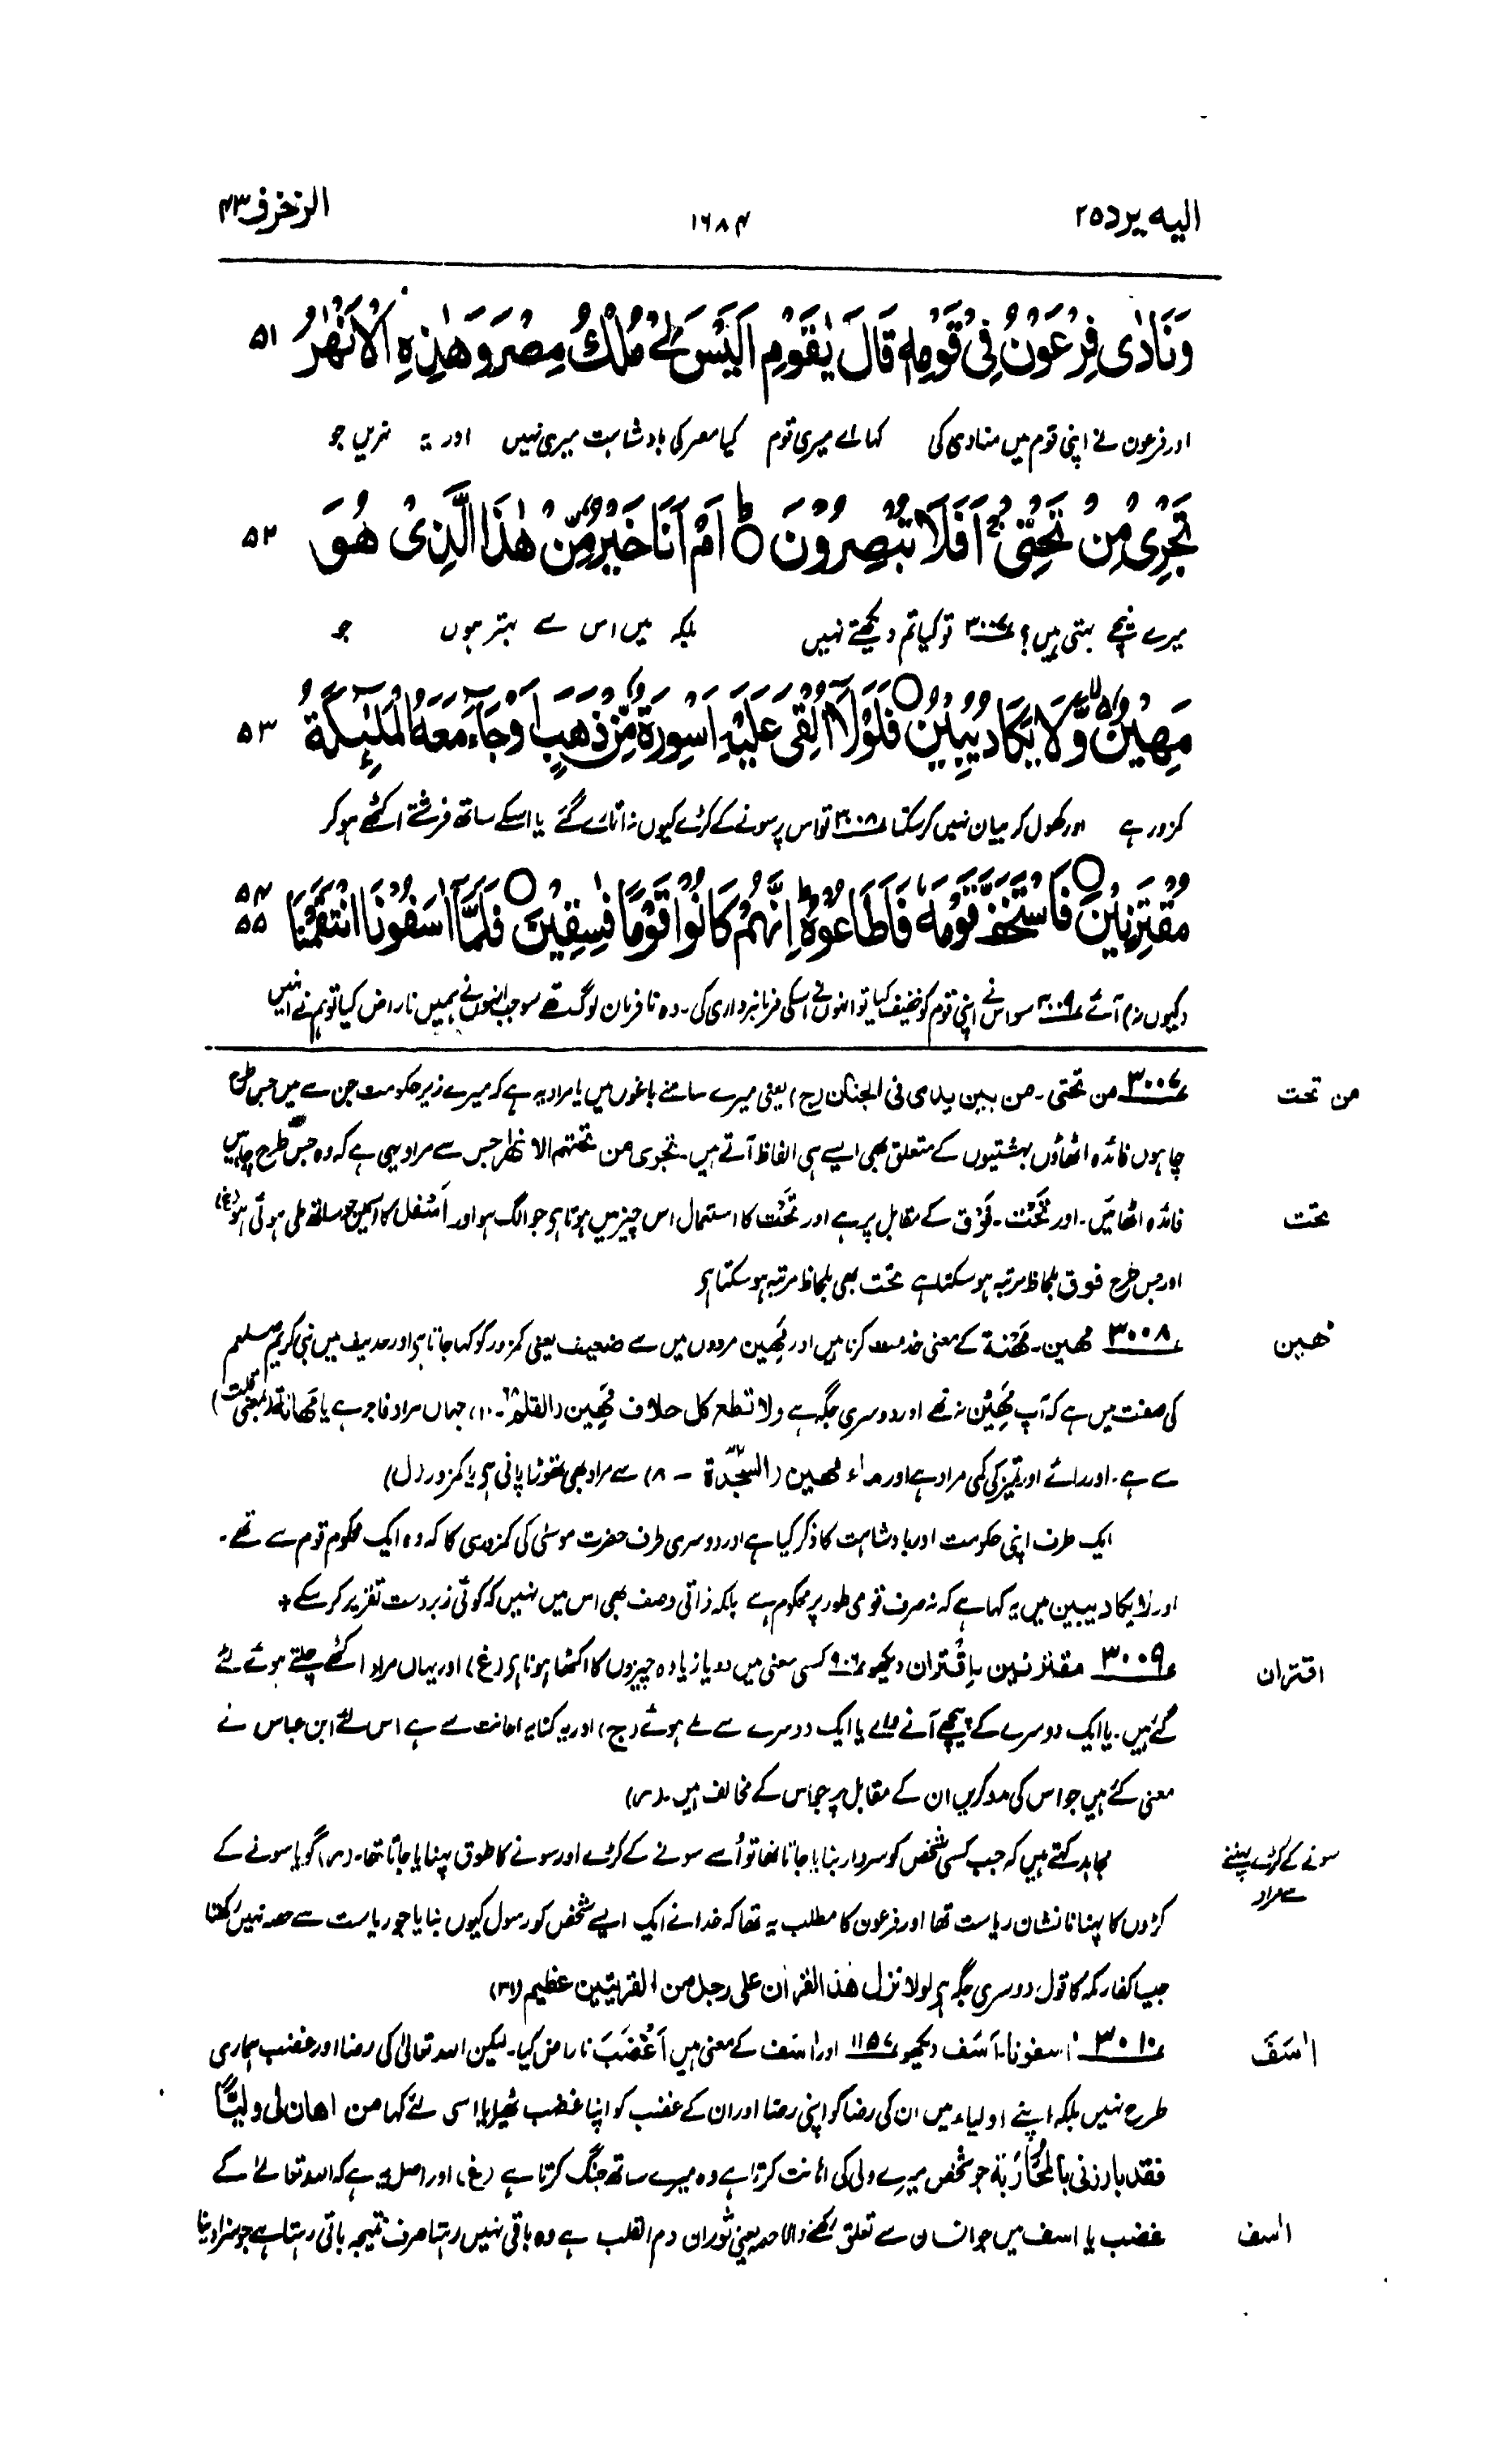 الیه یرد ۲۵ ۱۶۸۴ الزخرف ۴۳
وَنَادٰی فِرْعَوْنُ فِیْ قَوْمِهٖ قَالَ یٰقَوْمِ اَلَیْسَ لِیْ مُلْكُ مِصْرَ وَهٰذِهِ الْاَنْهٰرُ ۵۱
اور فرعون نے اپنی قوم میں منادی کی کہا اے میری قوم کیا مصر کی بادشاہت میری نہیں اور یہ نہریں جو
تَجْرِیْ مِنْ تَحْتِیْ ۚ اَفَلَا تُبْصِرُوْنَ ؕ○ اَمْ اَنَا خَیْرٌ مِّنْ هٰذَا الَّذِیْ هُوَ ۵۲
میرے نیچے بہتی ہیں؟ ۳۰۰۷ تو کیا تم دیکھتے نہیں بلکہ میں اس سے بہتر ہوں جو
مَهِیْنٌ ۙ۬ وَّلَا یَكَادُ یُبِیْنُ ○ فَلَوْلَاۤ اُلْقِیَ عَلَیْهِ اَسْوِرَةٌ مِّنْ ذَهَبٍ اَوْ جَآءَ مَعَهُ الْمَلٰٓئِكَةُ ۵۳
کمزور ہے اور کھول کر بیان نہیں کرسکتا ۳۰۰۸ تو اس پر سونے کے کڑے کیوں نہ اتارے گئے یا اسکے ساتھ فرشتے اکٹھے ہو کر
مُقْتَرِنِیْنَ ○ فَاسْتَخَفَّ قَوْمَهٗ فَاَطَاعُوْهُ ؕ اِنَّهُمْ كَانُوْا قَوْمًا فٰسِقِیْنَ ○ فَلَمَّاۤ اٰسَفُوْنَا انْتَقَمْنَا ۵۴ ۵۵
(کیوں نہ) آئے ۳۰۰۹ سو اس نے اپنی قوم کو خفیف کیا تو انہوں نے اسکی فرمانبرداری کی۔ وہ نافرمان لوگ تھے سو جب انہوں نے ہمیں ناراض کیا تو ہم نے انہیں
من تحت ۳۰۰۷ من تحتی۔ من بین یدی فی الجنان (ج) یعنی میرے سامنے باغوں میں یا مراد یہ ہے کہ میرے زیر حکومت جن سے میں جس طرح
چاہوں فائدہ اٹھاؤں بہشتیوں کے متعلق بھی ایسے ہی الفاظ آتے ہیں۔ تجری من تحتهم الانهٰر جس سے مراد یہی ہے کہ وہ جس طرح چاہیں
تحت فائدہ اٹھائیں۔ اور تَحْت۔ فَوْق کے مقابل پر ہے اور تَحْت کا استعمال اس چیز میں ہوتا ہی جو الگ ہو اور اَسْفل کا اسمیں جو ساتھ ملی ہوئی ہو (غ)
اور جس طرح فوق بلحاظ مرتبہ ہو سکتا ہے تحت بھی بلحاظ مرتبہ ہو سکتا ہی
مهین ۳۰۰۸ مهین۔ مَهْنة کے معنی خدمت کرنا ہیں اور مَهِین مردوں میں سے ضعیف یعنی کمزور کو کہا جاتا ہی اور حدیث میں نبی کریم صلعم
کی صفت میں ہے کہ آپ مَهِیْن نہ تھے اور دوسری جگہ ہے ولا تطع كل حلاف مَّهین (القلم ۶۸۔ ۱۰) جہاں مراد فاجر ہے یا مَهانة (بمعنی قلت)
سے ہے۔ اور رائے اور تمیز کی کمی مراد ہے اور ماء مهین (السَّجْدة ۳۲ – ۸) سے مراد بھی تھوڑا پانی ہی یا کمزور (ل)
ایک طرف اپنی حکومت اور بادشاہت کا ذکر کیا ہے اور دوسری طرف حضرت موسٰی کی کمزوری کا کہ وہ ایک محکوم قوم سے تھے۔
اور لا یکاد یبین میں یہ کہا ہے کہ نہ صرف قومی طور پر محکوم ہے بلکہ ذاتی وصف بھی اس میں نہیں کہ کوئی زبردست تقریر کر سکے ÷
اقتران ۳۰۰۹ مقترنین۔ اِقتران دیکھو ۹۰۶ کسی معنی میں دو یا زیادہ چیزوں کا اکٹھا ہونا ہی (غ) اور یہاں مراد اکٹھے چلتے ہوئے لئے
گئے ہیں۔ یا ایک دوسرے کے پیچھے آنے والے یا ایک دوسرے سے ملے ہوئے (ج) اور یہ کنایہ اعانت سے ہے اس لئے ابن عباس نے
معنی کئے ہیں جو اس کی مدد کریں ان کے مقابل پر جو اس کے مخالف ہیں۔ (ر)
سونے کے کڑے پہننے سے مراد مجاہد کہتے ہیں کہ جب کسی شخص کو سردار بنایا جاتا تھا تو اُسے سونے کے کڑے اور سونے کا طوق پہنایا جاتا تھا۔ (ر) گویا سونے کے
کڑوں کا پہنانا نشان ریاست تھا اور فرعون کا مطلب یہ تھا کہ خدا نے ایک ایسے شخص کو رسول کیوں بنایا جو ریاست سے حصہ نہیں رکھتا
جیسا کفار مکہ کا قول دوسری جگہ ہی لولا نزل هٰذا القرآن علی رجل من القریتین عظیم (۳۱)
اٰسَفَ ۳۰۱۰ اٰسفونا۔ اَسَف دیکھو ۱۱۵۷ اور اٰسَف کے معنی ہیں اَغْضَبَ ناراض کیا۔ لیکن اللہ تعالیٰ کی رضا اور غضب ہماری
طرح نہیں بلکہ اپنے اولیاء میں ان کی رضا کو اپنی رضا اور ان کے غضب کو اپنا غضب ٹھیرایا اسی لئے کہا من اهان لی ولیًّا
فقد بارزنی بالمُحَارَبة جو شخص میرے ولی کی اہانت کرتا ہے وہ میرے ساتھ جنگ کرتا ہے (غ) اور اصل یہ ہے کہ اللہ تعالےٰ کے
اسف غضب یا اسف میں جو انسان سے تعلق رکھنے والا حصہ یعنی ثوران دم القلب ہے وہ باقی نہیں رہتا صرف نتیجہ باقی رہتا ہے جو سزا دینا